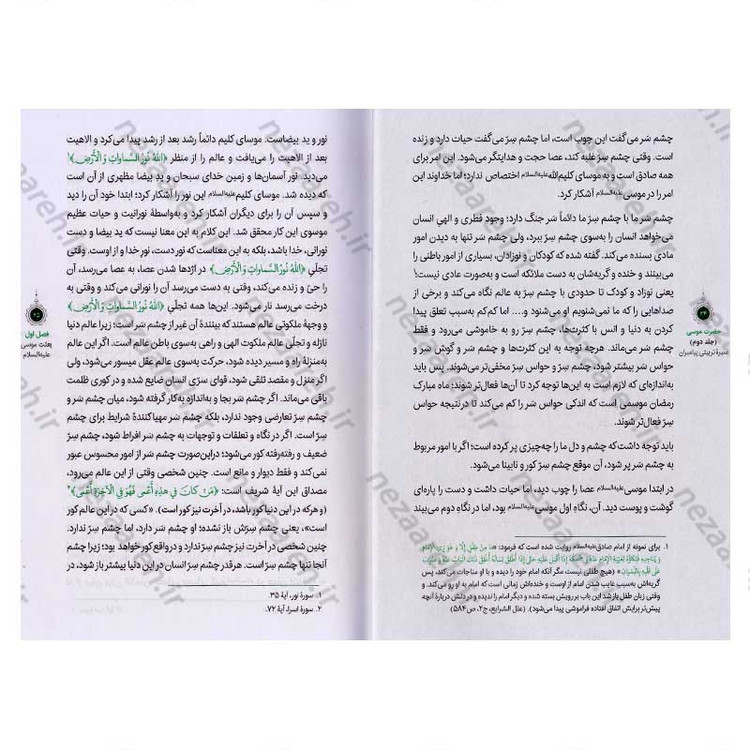 چشم سَر می‌گفت این چوب است، اما چشم سِرّ می‌گفت حیات دارد و زنده
است. وقتی چشم سِرّ غلبه کند، عصا حجت و هدایتگر می‌شود. این امر برای
همه صادق است و به موسای کلیم‌الله علیه‌السلام اختصاص ندارد؛ اما خداوند این
امر را در موسی علیه‌السلام آشکار کرد.
چشم سَر ما با چشم سِرّ ما دائماً سَر جنگ دارد؛ وجود فطری و الهی انسان
می‌خواهد انسان را به‌سوی چشم سِرّ ببرد، ولی چشم سَر تنها به دیدن امور
مادی بسنده می‌کند. گفته شده که کودکان و نوزادان، بسیاری از امور باطنی را
می‌بینند و خنده و گریه‌شان به دست ملائکه است و به‌صورت عادی نیست؛۱
یعنی نوزاد و کودک تا حدودی با چشم سِرّ به عالم نگاه می‌کند و برخی از
صداهایی را که ما نمی‌شنویم او می‌شنود و.... اما کم‌کم به‌سبب تعلق پیدا
کردن به دنیا و انس با کثرت‌ها، چشم سِرّ رو به خاموشی می‌رود و فقط
چشم سَر می‌ماند. هرچه توجه به این کثرت‌ها و چشم سَر و گوش سَر و
حواس سَر بیشتر شود، چشم سِرّ و حواس سِرّ مخفی‌تر می‌شوند. پس باید
به‌اندازه‌ای که لازم است به این‌ها توجه کرد تا آن‌ها فعال‌تر شوند؛ ماه مبارک
رمضان موسمی است که اندکی حواس سَر را کم می‌کند تا در نتیجه حواس
سِرّ فعال‌تر شوند.
باید توجه داشت که چشم و دل ما را چه‌چیزی پر کرده است؛ اگر با امور مربوط
به چشم سَر پر شود، آن موقع چشم سِرّ کور و نابینا می‌شود.
در ابتدا موسی علیه‌السلام عصا را چوب دید، اما حیات داشت و دست را پاره‌ای
گوشت و پوست دید. آن، نگاه اول موسی علیه‌السلام بود، اما در نگاهِ دوم می‌بیند
۱. برای نمونه از امام صادق علیه‌السلام روایت شده است که فرمود:
(هیچ طفلی نیست مگر آنکه امام خود را دیده و با او مناجات می‌کند، پس
گریه‌اش به‌سبب غایب شدن امام از اوست و خنده‌اش زمانی است که امام به او رو می‌کند. و
وقتی زبان طفل باز شد این باب بر رویش بسته شده و دیگر امام را ندیده و در دلش دربارهٔ آنچه
پیش‌تر برایش اتفاق افتاده فراموشی پیدا می‌شود). (علل الشرایع، ج۲، ص۵۸۴)
۲۴
حضرت موسی
(جلد دوم)
سیرهٔ تربیتی پیامبران
نور و ید بیضاست. موسای کلیم دائماً رشد بعد از رشد پیدا می‌کرد و الاهیت
بعد از الاهیت را می‌یافت و عالم را از منظر ﴿اللهُ نُورُ السَّماواتِ وَ الْأَرْضِ﴾۱
می‌دید. نور آسمان‌ها و زمین خدای سبحان و ید بیضا مظهری از آن است
که دیده شد. موسای کلیم علیه‌السلام این نور را آشکار کرد؛ ابتدا خود آن را دید
و سپس آن را برای دیگران آشکار کرد و به‌واسطهٔ نورانیت و حیات عظیم
موسوی این کار محقق شد. این کلام به این معنا نیست که ید بیضا و دست
نورانی، خدا باشد، بلکه به این معناست که نور دست، نورِ خدا و از اوست. وقتی
تجلّی ﴿اللهُ نُورُ السَّماواتِ وَ الْأَرْضِ﴾ در اژدها شدن عصا، به عصا می‌رسد، آن
را حیّ و زنده می‌کند، وقتی به دست می‌رسد آن را نورانی می‌کند و وقتی به
درخت می‌رسد نار می‌شود. این‌ها همه تجلّی ﴿اللهُ نُورُ السَّماواتِ وَ الْأَرْضِ﴾
و وجههٔ ملکوتی عالم هستند که بینندهٔ آن غیر از چشم سَر است؛ زیرا عالم دنیا
نازله و تجلّی عالم ملکوت الهی و راهی به‌سوی باطن عالم است. اگر این عالم
به‌منزلهٔ راه و مسیر دیده شود، حرکت به‌سوی عالم عقل میسور می‌شود، ولی
اگر منزل و مقصد تلقی شود، قوای سرّی انسان ضایع شده و در کوری ظلمت
باقی می‌ماند. اگر چشم سَر بجا و به‌اندازه به‌کار گرفته شود، میان چشم سَر و
چشم سِرّ تعارضی وجود ندارد، بلکه چشم سَر مهیاکنندهٔ شرایط برای چشم
سِرّ است. اگر در نگاه و تعلقات و توجهات به چشم سَر افراط شود، چشم سِرّ
ضعیف و رفته‌رفته کور می‌شود؛ دراین‌صورت چشم سَر از امور محسوس عبور
نمی‌کند و فقط دیوار و مانع است. چنین شخصی وقتی از این عالم می‌رود،
مصداق این آیهٔ شریف است: ﴿مَن كانَ فِي هذِهِ أَعْمى فَهُوَ فِي الْآخِرَةِ أَعْمى﴾۲
(و هرکه در این دنیا کور باشد، در آخرت نیز کور است). «کسی که در این عالم کور
است»، یعنی چشم سِرّش باز نشده؛ او چشم سَر دارد، اما چشم سِرّ ندارد.
چنین شخصی در آخرت نیز چشم سِرّ ندارد و در واقع کور خواهد بود؛ زیرا چشم
آنجا تنها چشم سِرّ است. هرقدر چشم سِرّ انسان در این دنیا باطل باز شود، در
۱. سورهٔ نور، آیهٔ ۳۵.
۲. سورهٔ اسراء، آیهٔ ۷۲.
۲۵
فصل اول
بعثت موسی
علیه‌السلام
nezaareh.ir